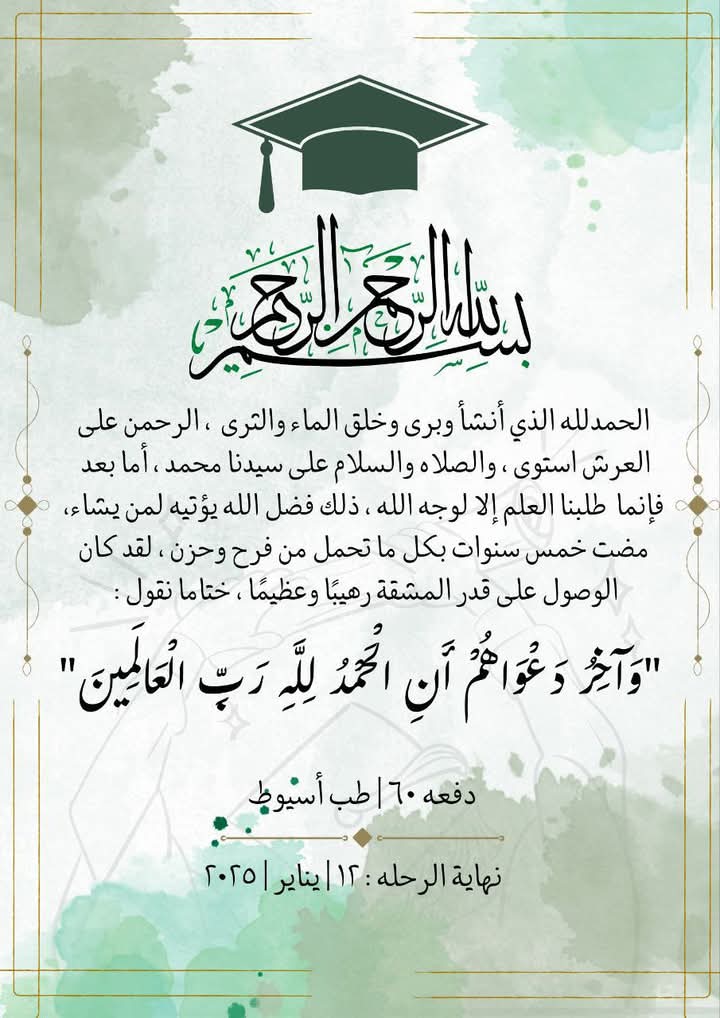 بسم الله الرحمن الرحيم
الحمدلله الذي أنشأ وبرى وخلق الماء والثرى ، الرحمن على
العرش استوى ، والصلاه والسلام على سيدنا محمد ، أما بعد
فإنما طلبنا العلم إلا لوجه الله ، ذلك فضل الله يؤتيه لمن يشاء،
مضت خمس سنوات بكل ما تحمل من فرح وحزن ، لقد كان
الوصول على قدر المشقة رهيبًا وعظيمًا ، ختاما نقول :
"وَآخِرُ دَعْوَاهُمْ أَنِ الْحَمْدُ لِلَّهِ رَبِّ الْعَالَمِينَ"
دفعه ٦٠ | طب أسيوط
نهاية الرحله : ١٢ | يناير | ٢٠٢٥